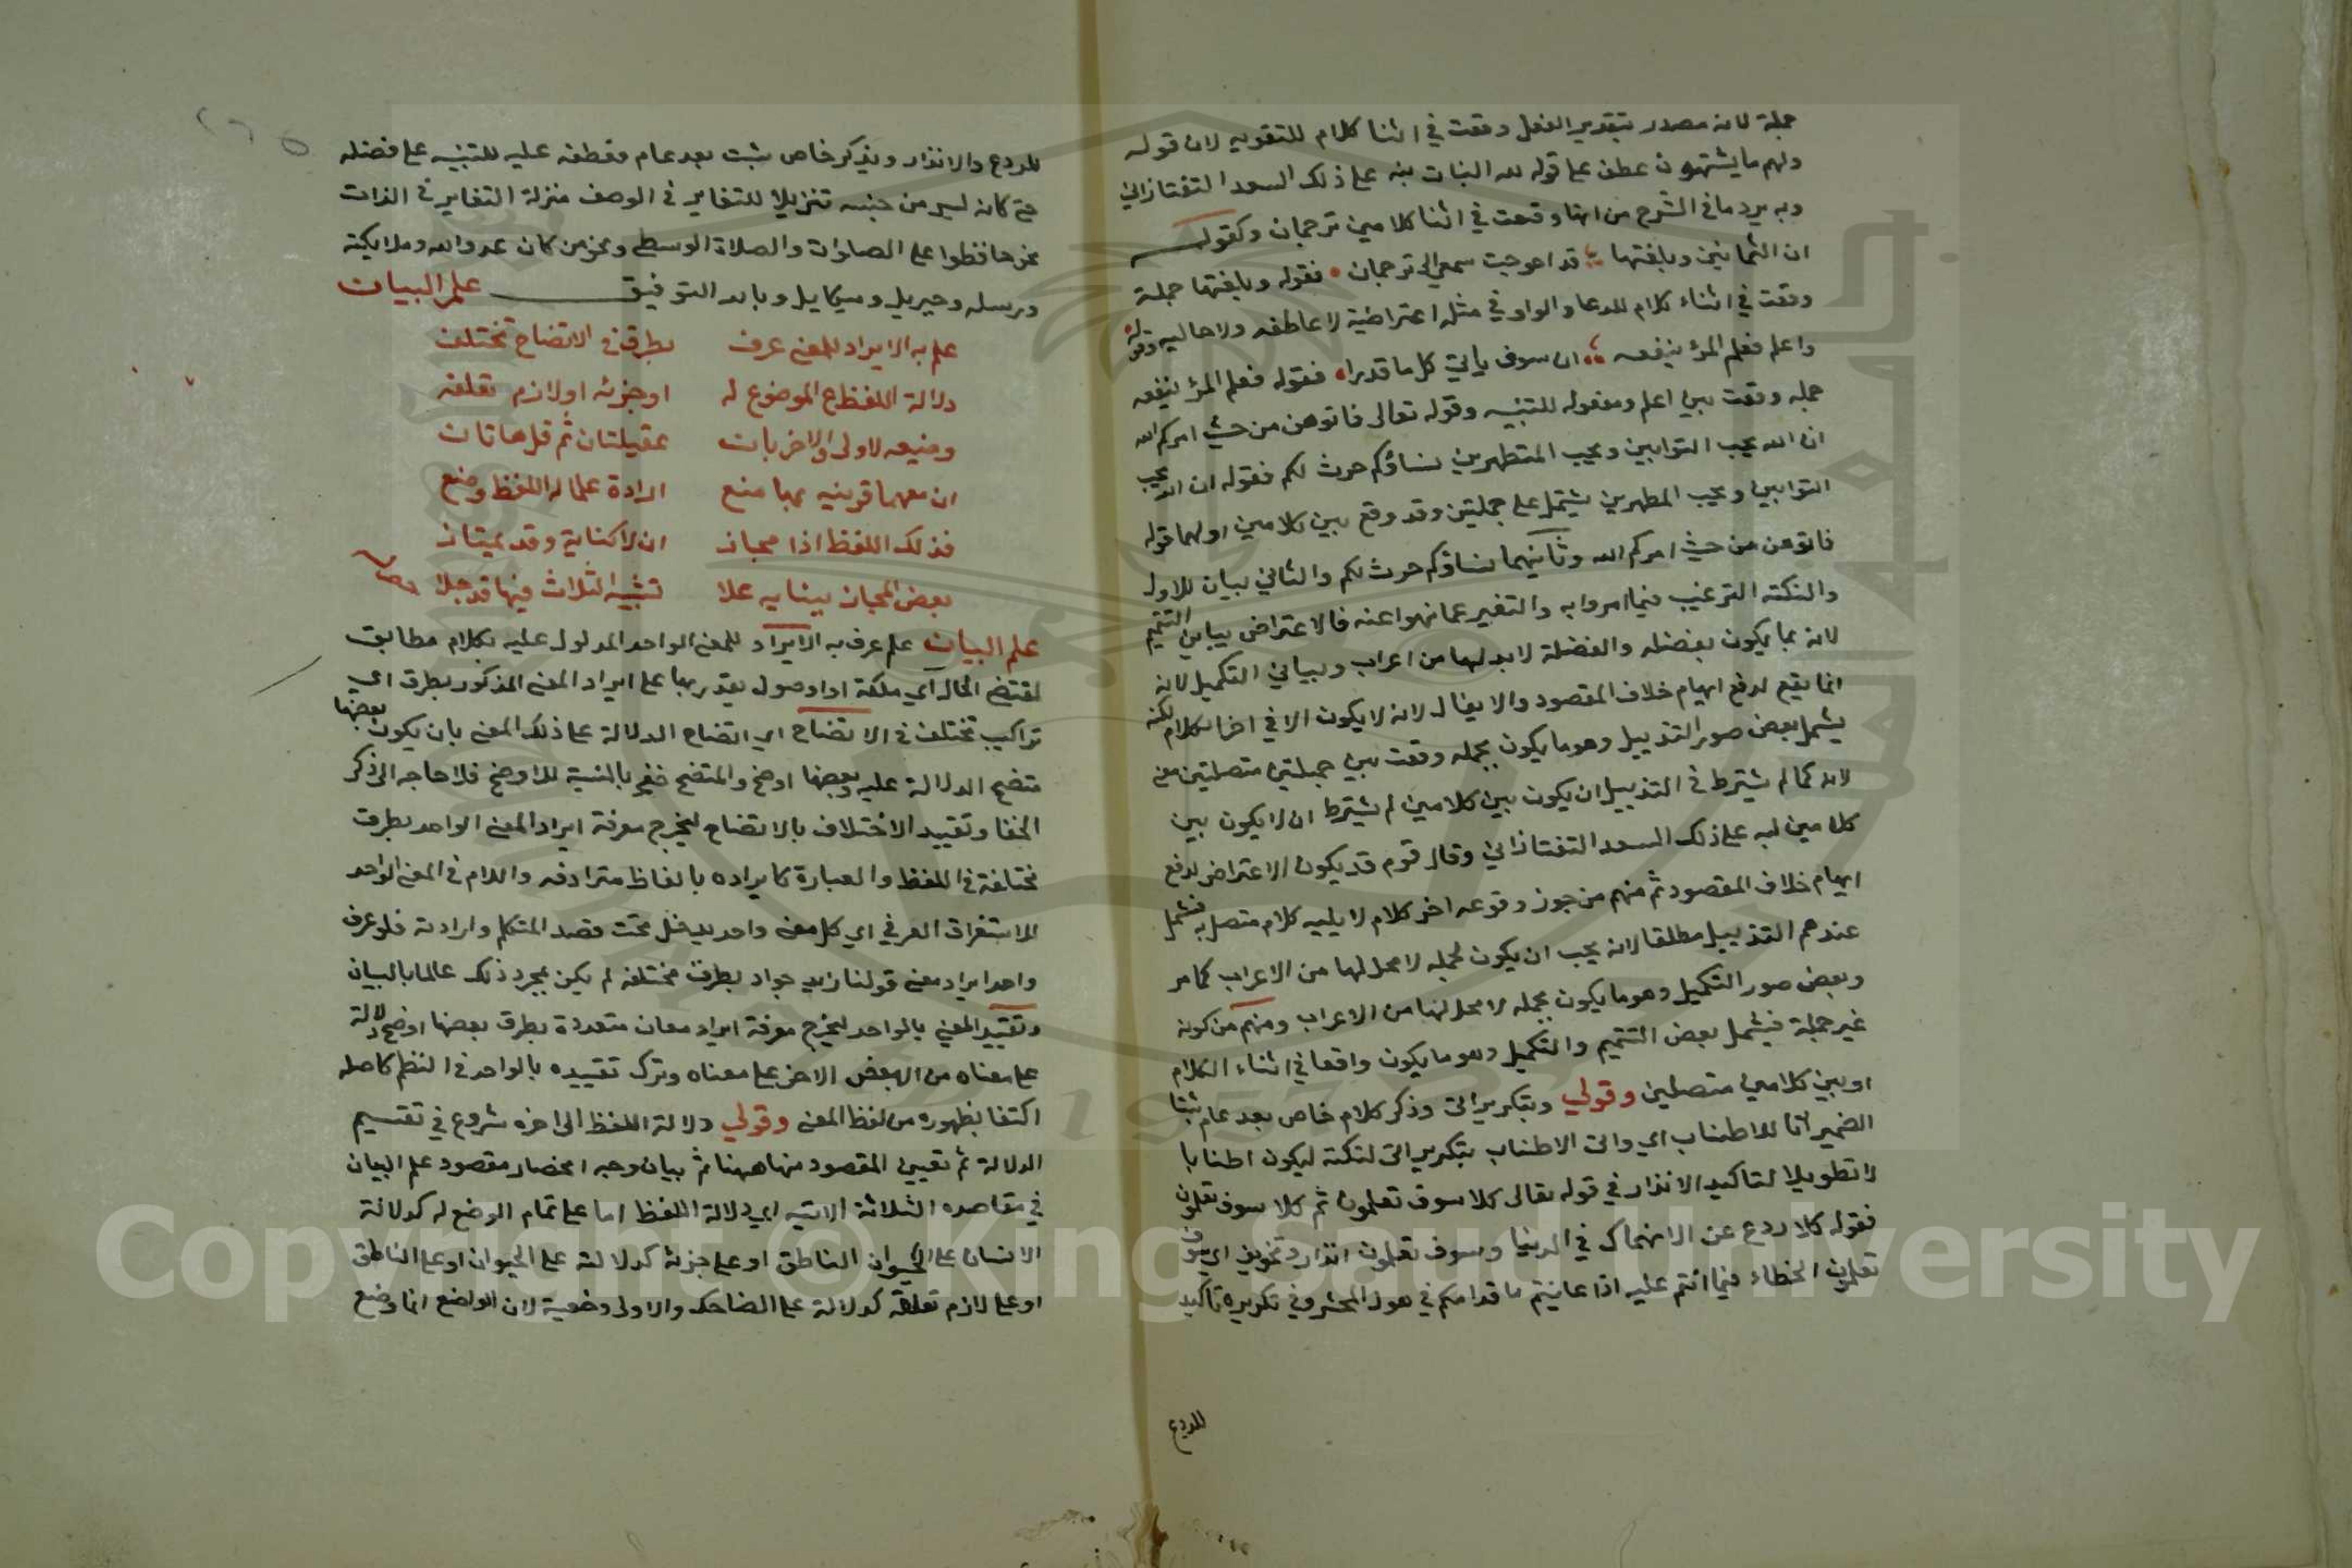 جملة لانه مصدر بتقدير الفعل وقعت في اثنا كلام للتقويه لان قوله
ولهم ما يشتهون عطف على قوله لله البنات نبه على ذلك السعد التفتازاني
وبه يرد ما في الشرح من انها وقعت في اثنا كلامين ترجمان وكقوله
ان الثمانين وبلغتها قد احوجت سمعي الى ترجمان فقوله وبلغتها جملة
وقعت في اثناء كلام للدعا والواو في مثله اعتراضية لا عاطفه ولا حاليه وقوله
واعلم فعلم المرؤ ينفعه ان سوف ياتي كل ما قدرا فقوله فعلم المرؤ ينفعه
جمله وقعت بين اعلم ومفعوله للتنبيه وقوله تعالى فاتوهن من حيث امركم الله
ان الله يحب التوابين ويحب المتطهرين نساؤكم حرث لكم فقوله ان الله يحب
التوابين ويحب المطهرين يشتمل على جملتين وقد وقع بين كلامين اولهما قوله
فاتوهن من حيث امركم الله وثانيهما نساؤكم حرث لكم والثاني بيان للاول
والنكته الترغيب فيما امروا به والتنفير عما نهوا عنه فالاعتراض يباين التتميم
لانه بما يكون بفضله والفضلة لا بد لها من اعراب ويباين التكميل لانه
انما يقع لدفع ايهام خلاف المقصود والايغال لانه لا يكون الا في اخر الكلام لكنه
يشمل بعض صور التذييل وهو ما يكون بجمله وقعت بين جملتين متصلتين معنى
لانه كما لم يشترط في التذييل ان يكون بين كلامين لم يشترط ان لا يكون بين
كلامين نبه على ذلك السعد التفتازاني وقال قوم قد يكون الاعتراض لدفع
ايهام خلاف المقصود ثم منهم من جوز وقوعه اخر كلام لا يليه كلام متصل به فيشمل
عندهم التذييل مطلقا لانه يجب ان يكون بجمله لا محل لها من الاعراب كما مر
وبعض صور التكميل وهو ما يكون بجمله لا محل لها من الاعراب ومنهم من كونه
غير جملة فيشمل بعض التتميم والتكميل وهو ما يكون واقعا في اثناء الكلام
او بين كلامين متصلين وقولي وبتكرير اتى وذكر كلام خاص بعد عام ثبتا
الضمير اتا للاطناب اي واتى الاطناب بتكرير اتى لنكتة ليكون اطنابا
لا تطويلا لتاكيد الانذار في قوله تعالى كلا سوف تعلمون ثم كلا سوف تعلمون
فقوله كلا ردع عن الانهماك في الدنيا وسوف تعلمون انذار وتخويف اي سوف
تعلمون الخطاء فيما انتم عليه اذا عاينتم ما قدامكم في هول المحشر وفي تكريره تاكيد
للردع
للردع والانذار وبذكر خاص يثبت بعد عام فعطفه عليه للتنبيه على فضله
حتى كانه ليس من جنسه تنزيلا للتغاير في الوصف منزلة التغاير في الذات
نحو حافظوا على الصلوات والصلاة الوسطى ونحو من كان عدوا لله وملايكته
ورسله وجبريل وميكايل وبالله التوفيق علم البيان
علم به الايراد للمعنى عرف بطرق في الاتضاح تختلف
دلالة اللفظ ع الموضوع له او جزئه او لازم تعلقه
وضيعه لاولى والاخريات عقيلتان ثم قل هاتان
ان معهما قرينيه بها منع ارادة علما له اللفظ وضع
فذلك اللفظ اذا مجاز ان لا كناية وقد يمتاز
بعض المجاز ببنايه علا تشبيه الثلاث فيها قد جلا
علم البيان علم عرف به الايراد للمعنى الواحد المدلول عليه بكلام مطابق
لمقتضى الحال اي ملكة او اصول يقدر بها على ايراد المعنى المذكور بطرق اي
تراكيب تختلف في الاتضاح اي اتضاح الدلالة على ذلك المعنى بان يكون بعضها
متضح الدلالة عليه وبعضها اوضح والمتضح خفي بالنسبة للاوضح فلا حاجه الى ذكر
الخفا وتقييد الاختلاف بالاتضاح ليخرج معرفة ايراد المعنى الواحد بطرق
مختلفة في اللفظ والعبارة كايراده بالفاظ مترادفه واللام في المعنى الواحد
للاستغراق العرفي اي كل معنى واحد يدخل تحت قصد المتكلم وارادته فلو عرف
واحد ايراد معنى قولنا زيد جواد بطرق مختلفه لم يكن بمجرد ذلك عالما بالبيان
وتقييد المعنى بالواحد ليخرج معرفة ايراد معان متعددة بطرق بعضها اوضح دلالة
على معناه من البعض الاخر على معناه وترك تقييده بالواحد في النظم كاصله
اكتفا بظهوره من لفظ المعنى وقولي دلالة اللفظ الى اخره شروع في تقسيم
الدلالة ثم تعيين المقصود منها ههنا ثم بيان وجه انحصار مقصود علم البيان
في مقاصده الثلاثة الاتيه اي دلالة اللفظ اما على تمام الوضع له كدلالة
الانسان على الحيوان الناطق او على جزئه كدلالته على الحيوان او على الناطق
او على لازم تعلقه كدلالة على الضاحك والاولى وضعية لان الواضع انما وضع
Copyright © King Saud University
1957